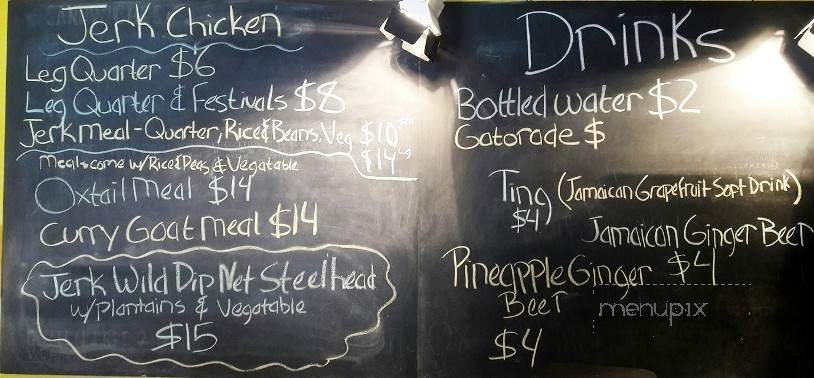 Jerk Chicken
Leg Quarter $6
Leg Quarter & Festivals $8
Jerk meal - Quarter, Rice & Beans, Veg $10 sm
$14 Lg
Meals come w/ Rice & Peas & Vegatable
Oxtail Meal $14
Curry Goat Meal $14
Jerk Wild Dip Net Steelhead
w/ Plantains & Vegatable
$15
Drinks
Bottled water $2
Gatorade $
Ting (Jamaican Grapefruit Soft Drink)
$4
Jamaican Ginger Beer
$4
Pineapple Ginger
Beer
$4
menupix